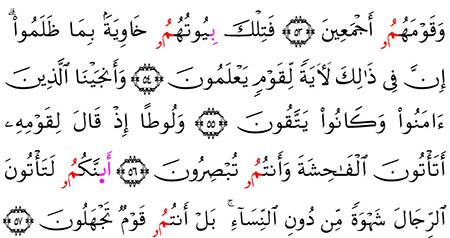 وَقَوْمَهُمُۥٓ أَجْمَعِينَ ٥٣ فَتِلْكَ بِيُوتُهُمُۥ خَاوِيَةَۢ بِمَا ظَلَمُوٓا۟ۗ
إِنَّ فِى ذَٰلِكَ لَأٓيَةً لِّقَوْمٍ يَعْلَمُونَ ٥٤ وَأَنجَيْنَا ٱلَّذِينَ
ءَامَنُوا۟ وَكَانُوا۟ يَتَّقُونَ ٥٥ وَلُوطًا إِذْ قَالَ لِقَوْمِهِۦٓ
أَتَأْتُونَ ٱلْفَٰحِشَةَ وَأَنتُمُۥ تُبْصِرُونَ ٥٦ أَى۪نَّكُمُۥ لَتَأْتُونَ
ٱلرِّجَالَ شَهْوَةً مِّن دُونِ ٱلنِّسَآءِۚ بَلْ أَنتُمُۥ قَوْمٌ تَجْهَلُونَ ٥٧